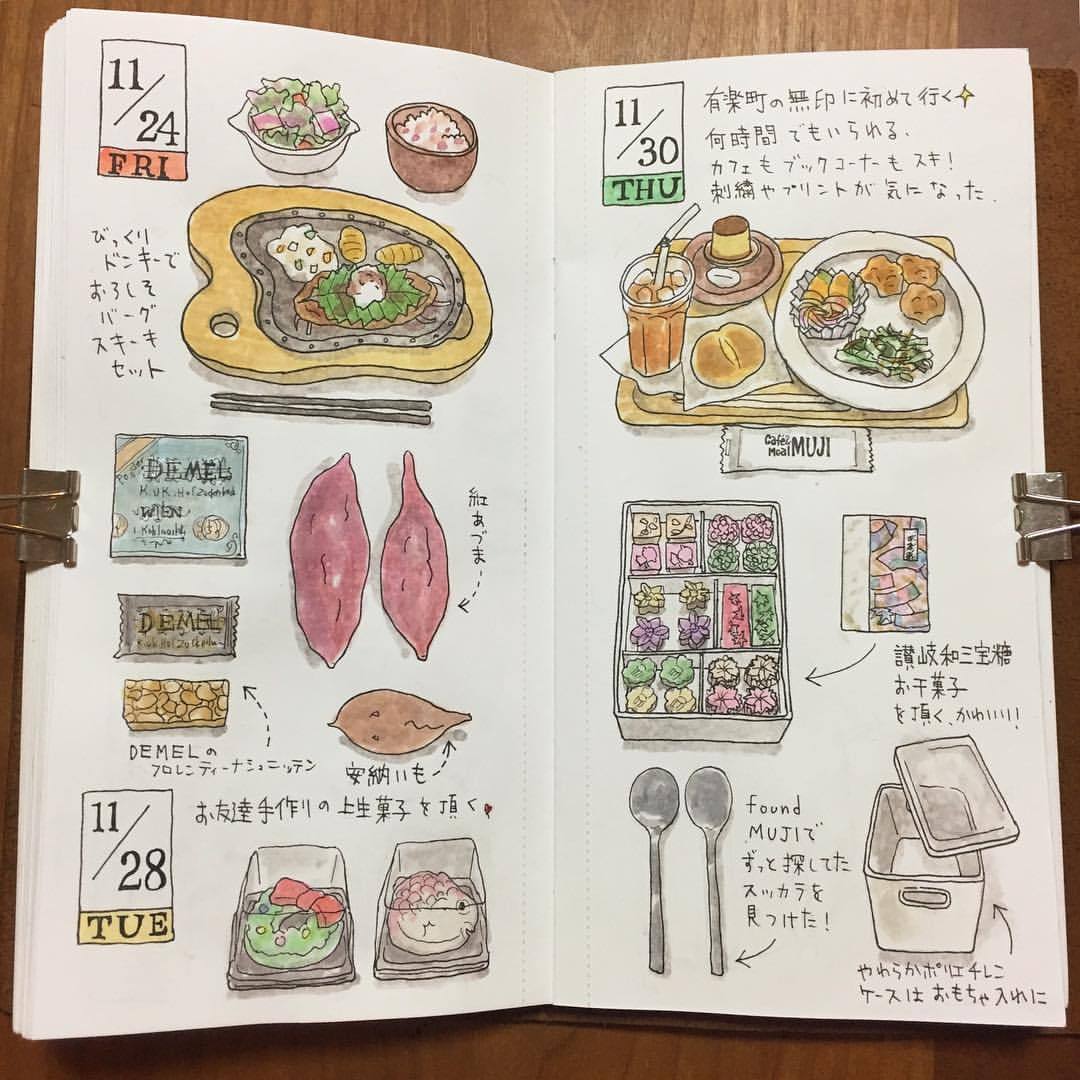 11/24
FRI
びっくり
ドンキーで
おろしそ
バーグ
スキーキ
セット
DEMEL
WIEN
紅あづま
DEMEL
DEMELの
フロレンティーナシュニッテン
安納いも
11/28
TUE
お友達手作りの上生菓子を頂く
11/30
THU
有楽町の無印に初めて行く
何時間でもいられる.
カフェもブックコーナーもスキ!
刺繍やプリントが気になった.
Café&
Meal MUJI
讃岐和三宝糖
お干菓子
を頂く、かわいい!
found
MUJIで
ずっと探してた
スッカラを
見つけた!
やわらかポリエチレン
ケースはおもちゃ入れに